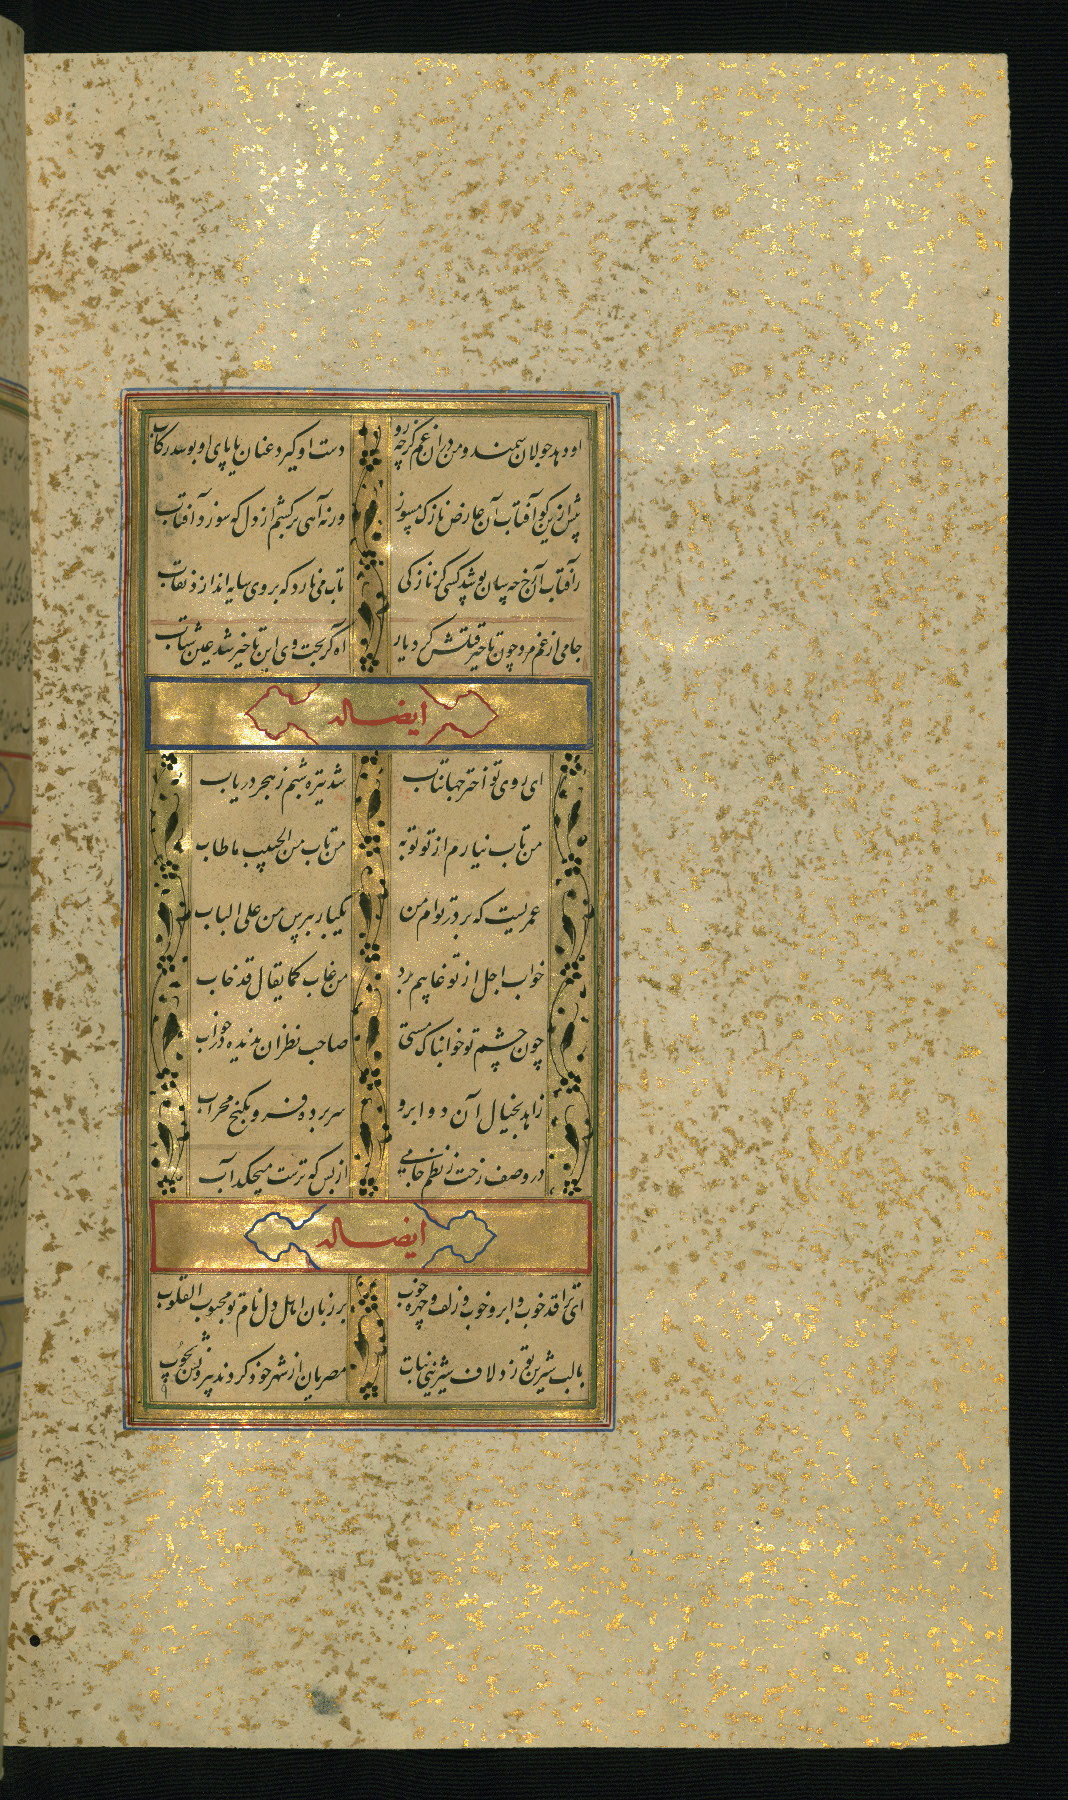 او دهد جولان سمند و من در ان غم کز چه رو دست او کیرد عنان یا پای او بوسد رکاب
پیش ازین کو آفتاب آن عارض نازک مسوز ورنه آهی برکشم از دل که سوزد آفتاب
زآفتاب آن رخ چه سان پوشد کسی کز نازکی تاب می نارد که بر وی سایه اندازد نقاب
جامی از غم مرد چون تاخیر قتلش کرد یار آه اگر بخت وی این تاخیر شد عین شتاب
ایضا له
ای روی تو اختر جهانتاب شد تیره شبم ز هجر دریاب
من تاب نیارم از تو توبه من تاب من الحبیب ما طاب
عمریست که بر در توام من یکبار بپرس من علی الباب
خواب اجل از تو غایبم برد من غاب کما یقال قد خاب
چون چشم تو خوابناک مستی صاحب نظران ندیده در خواب
زاهد بخیال آن دو ابرو سر برده فرو بکنج محراب
در وصف رخت ز نظم جامی از بس که ترست میچکد آب
ایضا له
ای ترا قد خوب و ابرو خوب و زلف و چهره خوب بر زبان اهل دل نام تو محبوب القلوب
با لب شیرین تو زد لاف شیرینی نبات مصریان از شهر خود کردند بیرونش بچوب